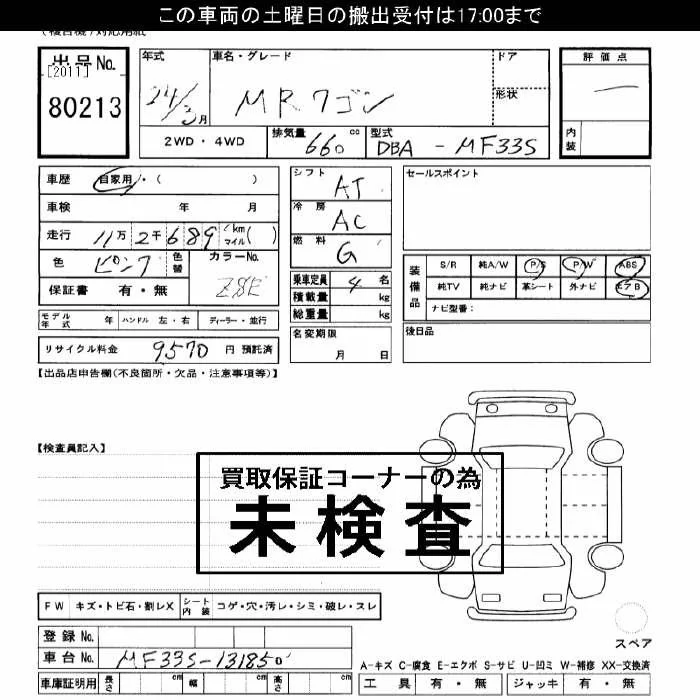 この車両の土曜日の搬出受付は17:00まで
(複合機)対応用紙
出品No.
[2011]
80213
年式
24/3月
車名・グレード
MRワゴン
ドア
形状
評価点
―
内装
2WD・4WD
排気量 660 cc
型式 DBA - MF33S
車歴 自家用・( )
車検 年 月
走行 11万2千689 km マイル( )
色 ピンク 色替 カラーNo. Z8E
保証書 有・無
シフト AT
冷房 AC
燃料 G
乗車定員 4 名
積載量 kg
総重量 kg
セールスポイント
装備品
S/R 純A/W P/S P/W ABS
純TV 純ナビ 革シート 外ナビ エアB
ナビ型番:
モデル年式 年 ハンドル 左・右 ディーラー・並行
名変期限 月 日
後日品
リサイクル料金 9570 円 預託済
【出品店申告欄(不良箇所・欠品・注意事項等)】
【検査員記入】
買取保証コーナーの為
未検査
FW キズ・トビ石・割レX シート内装 コゲ・穴・汚レ・シミ・破レ・スレ
スペア
登録No.
車台No. MF33S-131850
A-キズ C-腐食 E-エクボ S-サビ U-凹ミ W-補修 XX-交換済
車庫証明用 長さ cm 幅 cm 高さ cm
工具 有・無 ジャッキ 有・無